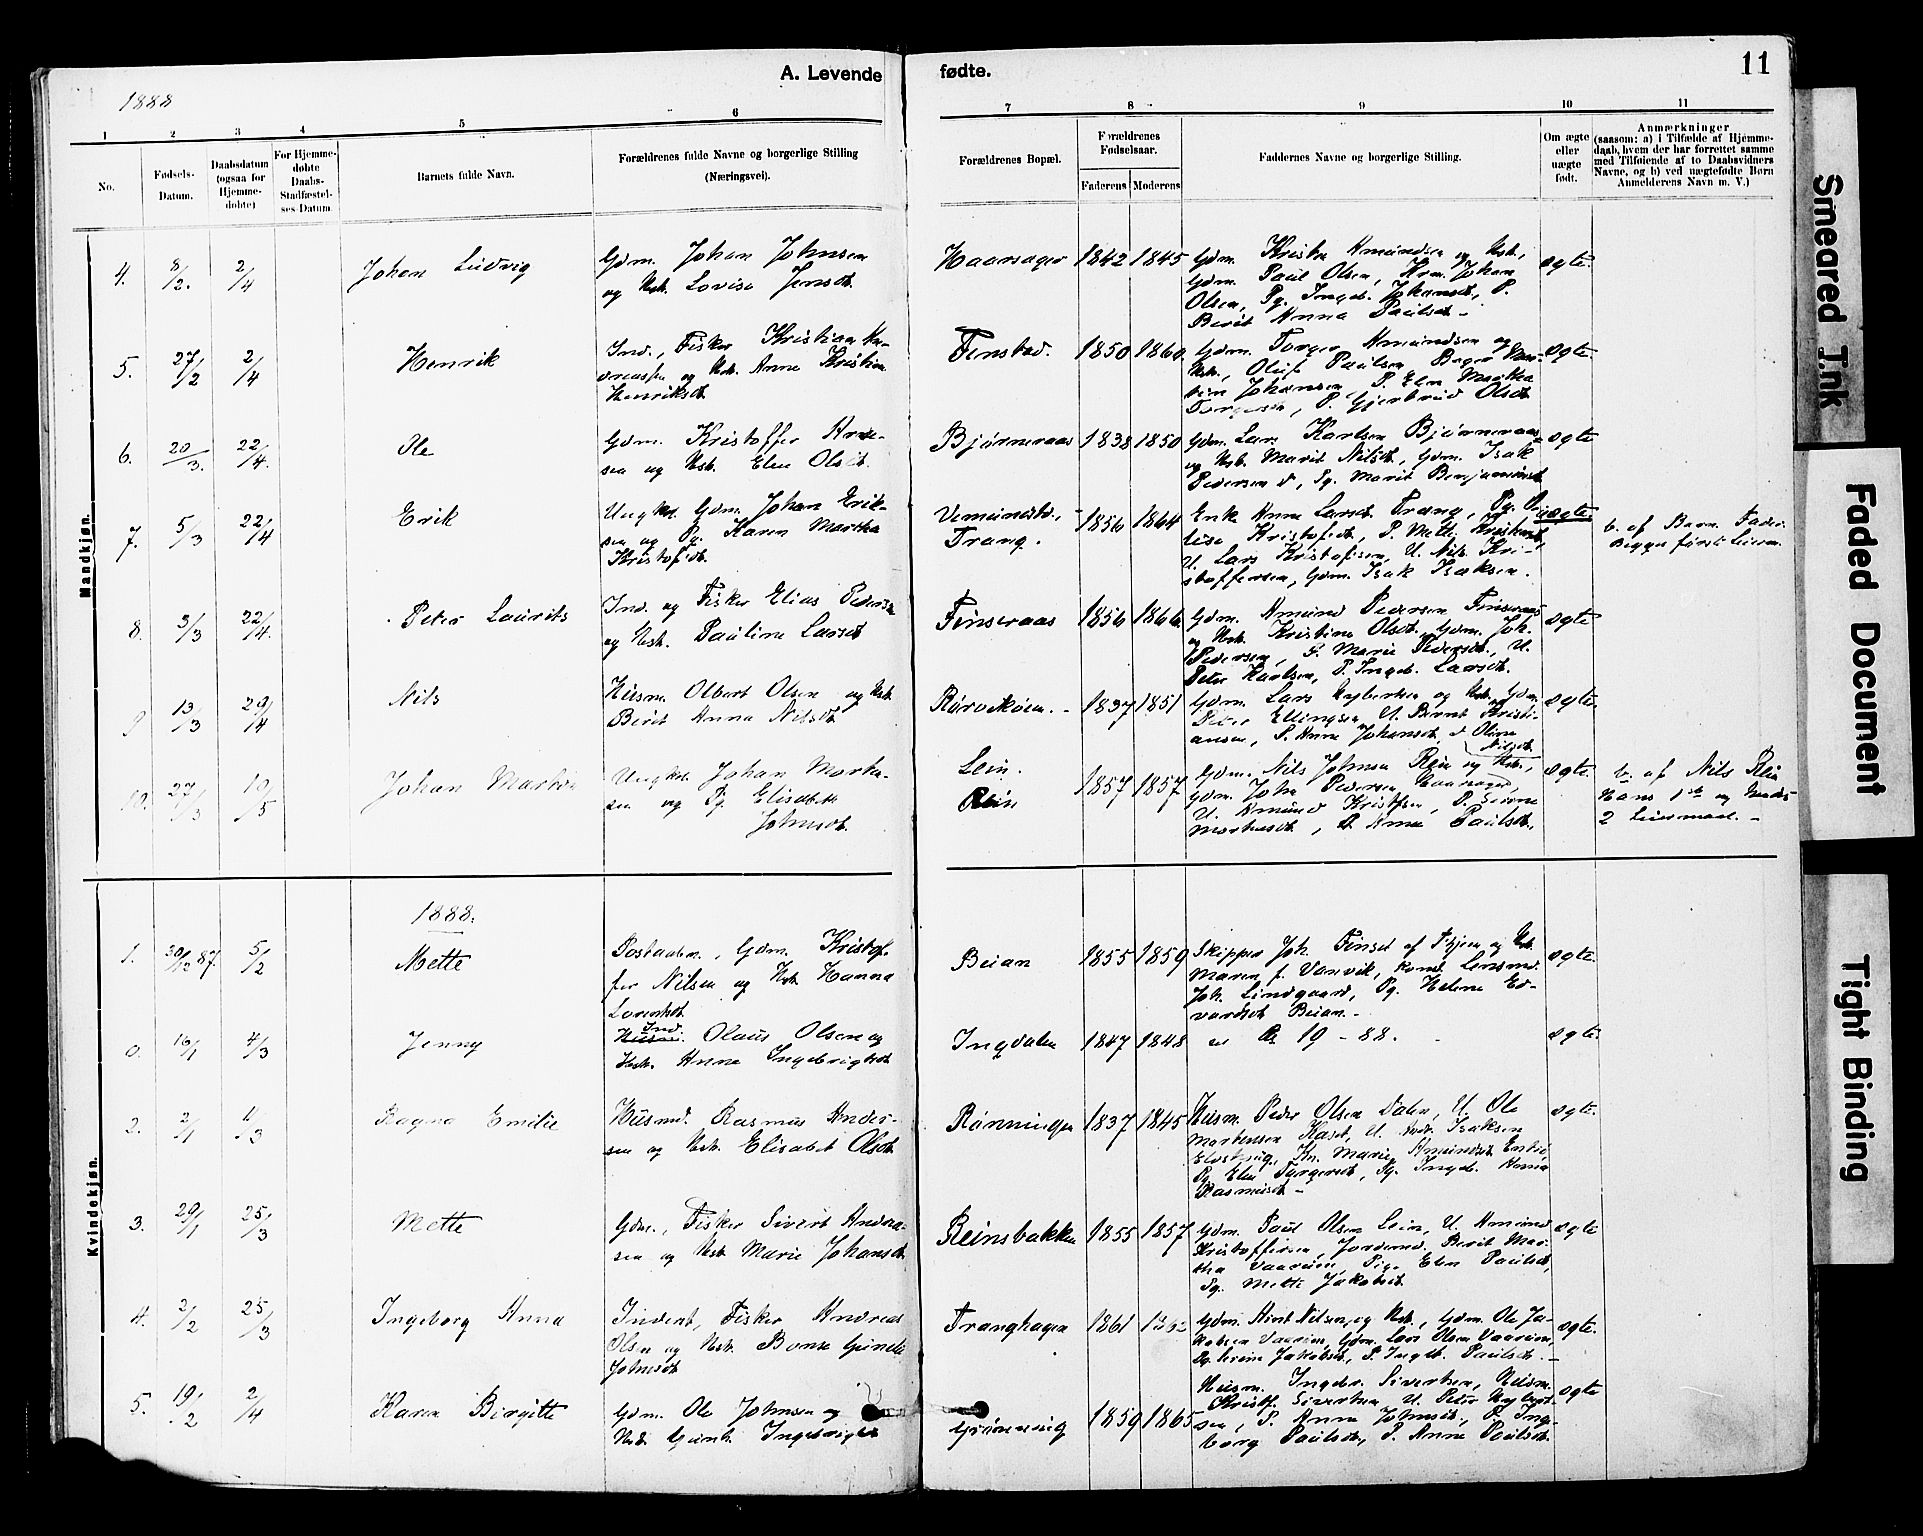 A. Levende fødte.
11
1888
1 2 3 4 5 6 7 8 9 10 11
No.
Fødsels-Datum.
Daabsdatum (ogsaa for Hjemme-døbte)
For Hjemme-døbte Daabs-Stadfæstel-ses-Datum.
Barnets fulde Navn.
Forældrenes fulde Navne og borgerlige Stilling (Næringsvei).
Forældrenes Bopæl.
Forældrenes Fødselsaar.
Faderens Moderens
Faddernes Navne og borgerlige Stilling.
Om ægte eller uægte født.
Anmærkninger
(saasom: a) i Tilfælde af Hjemme-
daab, hvem der har forrettet samme
med Tilføiende af to Daabsvidners
Navne, og b) ved uægtefødte Børn
Anmelderens Navn m. V.)
Mandkjøn.
4. 8/2. 2/4 Johan Ludvig
Gdm. Johan Johnsen
og Hst. Lovise Jensdt.
Haarsager 1842 1845
Gdm. Amundsen og Hst.,
Gdm. Paul Olsen, Johan
Olsen, Pg. Ingeb. Johansdt., P.
Berit Anna Paulsdt. -
ægte.
5. 27/2 2/4 Henrik
Ind., Fisker Kristian An-
dreassen og Hst. Anne Kristine
Henriksdt.
Finstad. 1850 1860.
Gdm. Torger Amundsen og
Hst., Oluf Paulsen,
Johansen, P. Elen Martha
P. Gjertrud Olsdt.
ægte.
6. 20/3. 22/4. Ole
Gdm. Kristoffer Arne-
sen og Hst. Elen Olsdt.
Bjørneraas 1838 1850
Gdm. Lars Karlsen Bjørneraas
og Hst. Marit Nilsdt., Gdm. Isak
Pedersen d, Pg. Marit Benjaminsdt.
ægte
7. 5/3 22/4 Erik
Ungkl. Gdm. Johan Erik-
sen og Pg. Karen Martha
Kristofdt.
Trang. 1856 1864
Enke Anne Larsdt. Trang, Pg.
Kristofdt, P. Mette
U. Lars Kristofsen, U. Nils Kri-
stoffersen, Gdm. Isak Isaksen.
uægte
b. af Barn. Fader.
Begges første Leierm.
8. 3/3 22/4. Peter Laurits
Ind. og Fisker Elias Pedersen
og Hst. Pauline Larsdt
Finseraas 1856 1866.
Gdm. Amund Pedersen Finseraas
og Hst. Kristine Olsdt. Gdm. Joh.
Pedersen, P. Marie Pedersdt., U.
Peter Karlsen, P. Ingeb. Larsdt.
ægte.
9 13/3 29/4 Nils
Husm. Olbert Olsen og Hst.
Berit Anna Nilsdt.
Rørvikøien. 1837 1851
Gdm. Lars og Hst. Gdm.
Peter Ellingsen, U. Bernt Kristi-
ansen, P. Anne Johansdt. & Oline
Nilsdt.
ægte.
10. 27/3 10/5 Johan Martin
Ungkl. Johan Morten-
sen og Pg. Elisabeth
Johnsdt.
Lein.
Rein
1857 1857
Gdm. Nils Johnsen Rein og Hst.,
Gdm. John Pedersen Haarsager,
U. Amund Kristfsen, P.
Mortensdt., P. Anne Paulsdt.,
ægte
b. af Nils Rein
Hans 1ste og Hendes
2 Leiermaal. -
Kvindekjøn.
1888.
1. 30/12 87. 5/2 Mette
Postaabn., Gdm. Kristof-
fer Nilsen og Hst. Hanna
Lorentsdt.
Beian 1855 1859
Skipper Joh. Finset af Thjem og Hst.
Maren f. Vanvik, konst. Lensmd.
Joh. Lindgaard, Pg. Helene Ed-
vardsdt. Beian. -
ægte.
0. 16/1 4/3 Jenny
Ind.
Husm. Olaus Olsen og
Hst. Anne Ingebrigtsdt
Ingdalen 1847 1848
19 - 88.
ægte.
2. 2/1 11/3 Ragna Emilie
Husmd. Rasmus Ander-
sen og Hst. Elisabet Olsdt
Rønningen 1837 1845
Husm. Peder Olsen Dalen, U. Ole
Mortensen U. Isaksen
Marie Amundsdt.
Pg. Elen Torgersdt, Pg. Ingeb. Anna
Rasmusdt. -
ægte.
3. 29/1 25/3 Mette
Gdm., Fisker Sivert Andrea-
sen og Hst. Marie Johansdt.
Reinsbakken 1855 1857
Gdm. Paul Olsen Lein, U. Amund
Kristoffersen, Jordemd. Berit Mar-
tha Vaarum, Pig. Elen Paulsdt,
Pg. Mette Jakobsdt.
ægte
4. 2/2 25/3 Ingeborg Anna
Inderst, Fisker Andreas
Olsen og Hst.
Johnsdt.
Tranghagen 1861
Gdm. Nilsen og Hst., Gdm. Ole Ja-
kobsen Vaarum, Gdm. Lars Olsen Vaarum,
Jakobsdt., P. Ingeb. Paulsdt. -
ægte.
5. 19/2 2/4 Karen Birgitte
Gdm. Ole Johnsen og
Hst. Gunh.
Grønning 1859 1865
Husm. Ingebr. Sivertsen, Husm.
Kristf. Sivertsen U. Peter
P. Anne Johnsdt., P. Inge-
borg Paulsdt., P. Anne Paulsdt.
ægte
Smeared Ink
Faded Document
Tight Binding